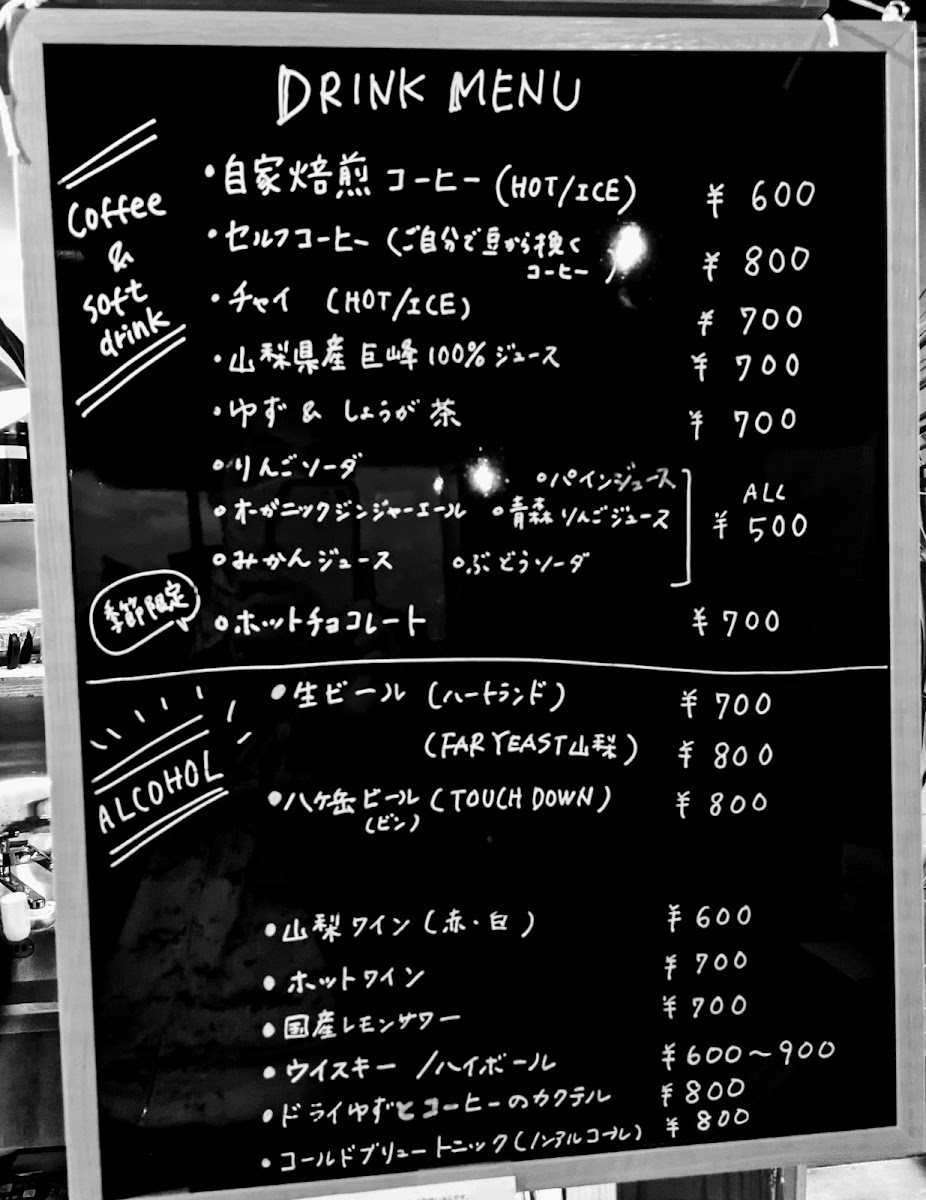 DRINK MENU
Coffee
&
soft
drink
・自家焙煎 コーヒー (HOT/ICE) ¥ 600
・セルフコーヒー (ご自分で豆から挽く
コーヒー ) ¥ 800
・チャイ (HOT/ICE) ¥ 700
・山梨県産 巨峰 100% ジュース ¥ 700
・ゆず & しょうが茶 ¥ 700
○りんごソーダ ○パインジュース
○オーガニックジンジャーエール ○青森りんごジュース ALL ¥ 500
○みかんジュース ○ぶどうソーダ
季節限定
○ホットチョコレート ¥ 700
ALCOHOL
●生ビール (ハートランド) ¥ 700
(FAR YEAST 山梨) ¥ 800
●八ヶ岳ビール (TOUCH DOWN) ¥ 800
(ビン)
●山梨ワイン (赤・白) ¥ 600
●ホットワイン ¥ 700
●国産レモンサワー ¥ 700
●ウイスキー /ハイボール ¥600〜900
●ドライゆずとコーヒーのカクテル ¥800
●コールドブリュートニック (ノンアルコール) ¥ 800